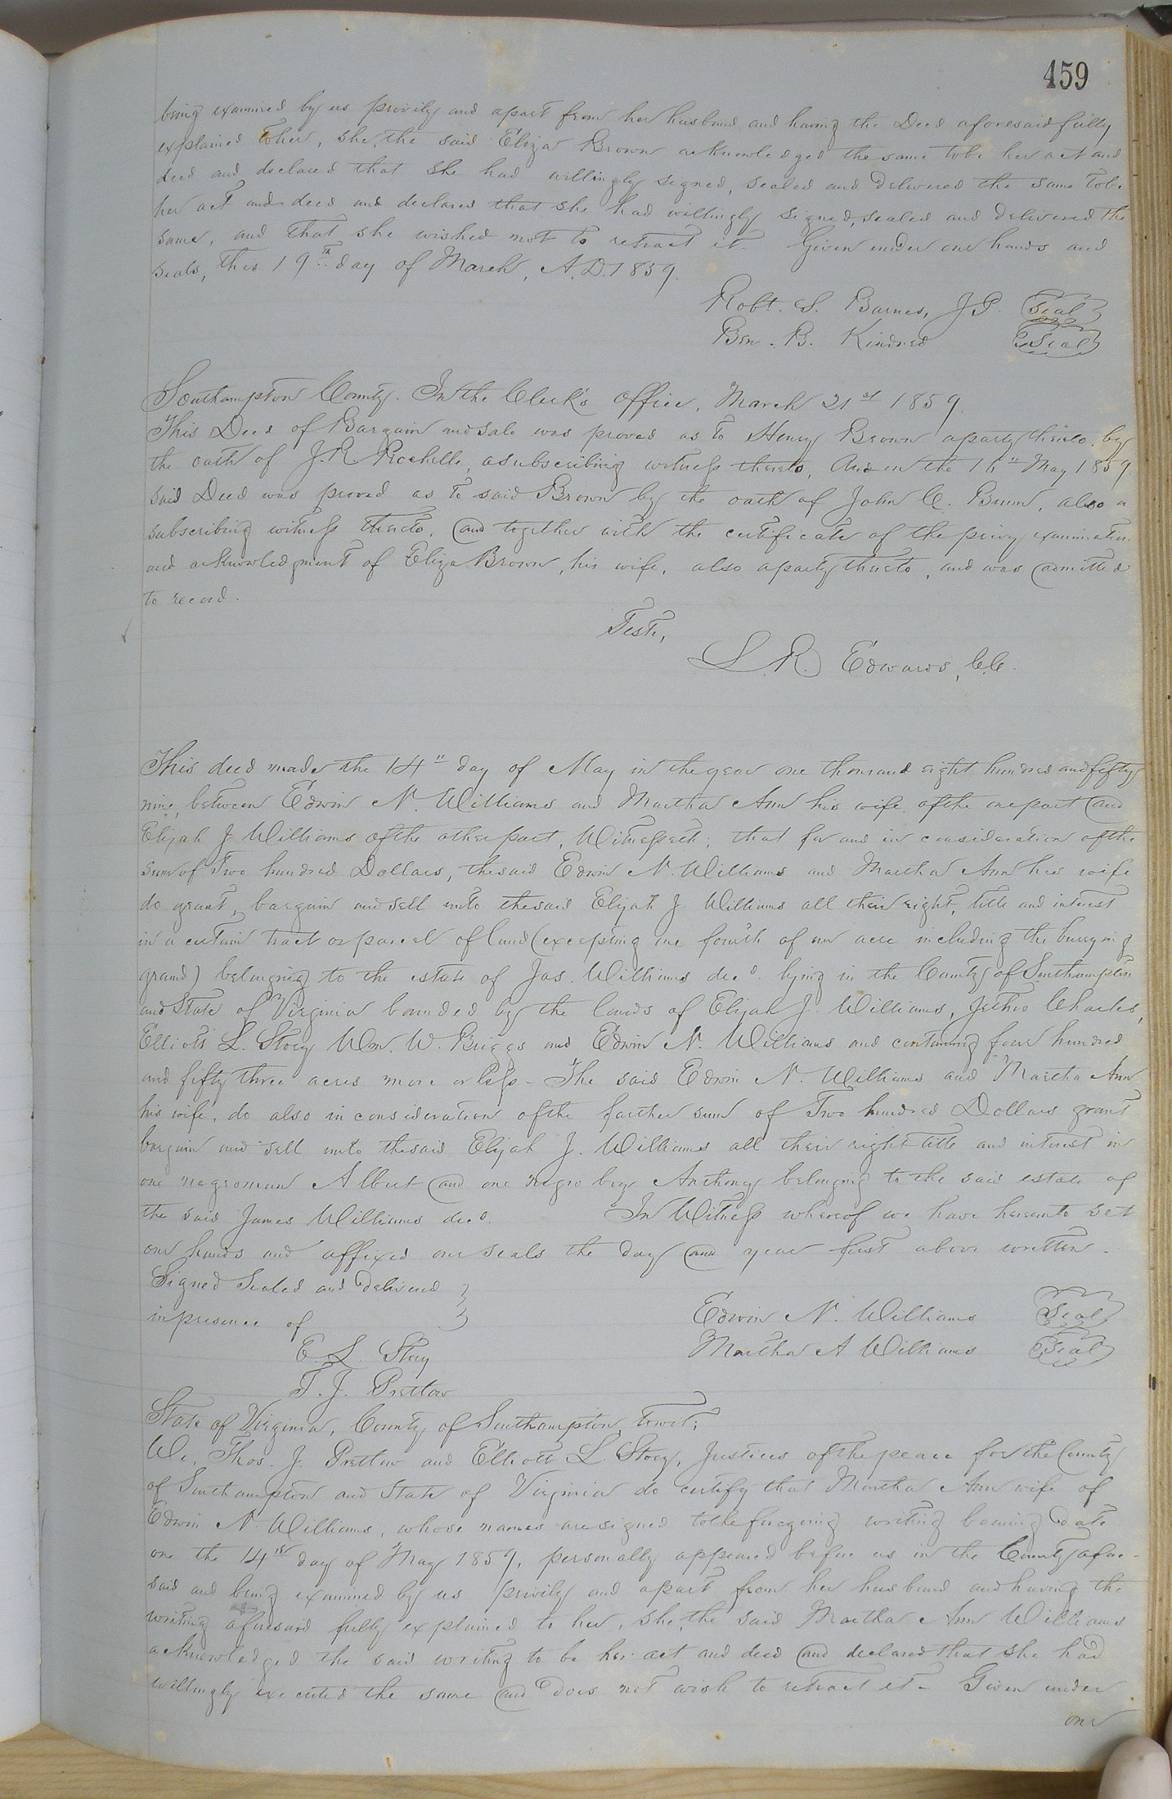 459
being examined by us privily and apart from her husband and having the Deed aforesaid fully
explained to her, she, the said Eliza Brown acknowledged the same to be her act and
deed and declared that she had willingly signed, sealed and delivered the same to be
her act and deed and declared that she had willingly signed, sealed and delivered the
same, and that she wished not to retract it. Given under our hands and
seals, this 19th day of March, A.D. 1859.
Robt. S. Barnes, J.P. Seal
Ben. B. Kindred Seal
Southampton County. In the Clerk's office, March 21st 1859.
This Deed of Bargain and sale was proved as to Henry Brown a party thereto, by
the oath of J. R. Rochelle, a subscribing witness thereto, And on the 16th May 1859
said Deed was proved as to said Brown by the oath of John C. also a
subscribing witness thereto, and together with the certificate of the privy examination
and acknowledgment of Eliza Brown, his wife, also a party thereto, and was admitted
to record.
Teste,
L. R. Edwards, C.C.
This deed made the 14th day of May in the year one thousand eight hundred and fifty
nine, between Edwin N. Williams and Martha Ann his wife of the one part and
Elijah J. Williams of the other part, Witnesseth; that for and in consideration of the
sum of Two hundred Dollars, the said Edwin N. Williams and Martha Ann his wife
do grant, bargain and sell unto the said Elijah J Williams all their right, title and interest
in a certain tract or parcel of land (excepting one fourth of an acre including the burying
ground) belonging to the estate of Jas. Williams decd. lying in the County of Southampton
and State of Virginia bounded by the lands of Elijah J. Williams, Jethro Charles,
Elliott L. Story Wm. W. Briggs and Edwin N. Williams and containing four hundred
and fifty three acres more or less - The said Edwin N. Williams and Martha Ann
his wife, do also in consideration of the farther sum of Two hundred Dollars grant
bargain and sell unto the said Elijah J. Williams all their right title and interest in
one negro man Albert and one negro boy Anthony belonging to the said estate of
the said James Williams decd. In Witness whereof we have hereunto set
our hands and affixed our seals the day and year first above written.
Signed Sealed and delivered
in presence of
Edwin N. Williams Seal
E L Story
Martha A Williams Seal
T. J. Pretlow
State of Virginia, County of Southampton, towit;
We, Thos. J. Pretlow and Elliott L Story, Justices of the peace for the County
of Southampton and State of Virginia do certify that Martha Ann wife of
Edwin N. Williams, whose names are signed to the foregoing writing bearing date
on the 14th day of May 1859, personally appeared before us in the County afore-
said and being examined by us privily and apart from her husband and having the
writing aforesaid fully explained to her, she, the said Martha Ann Williams
acknowledged the said writing to be her act and deed and declared that she had
willingly executed the same and does not wish to retract it - Given under
our